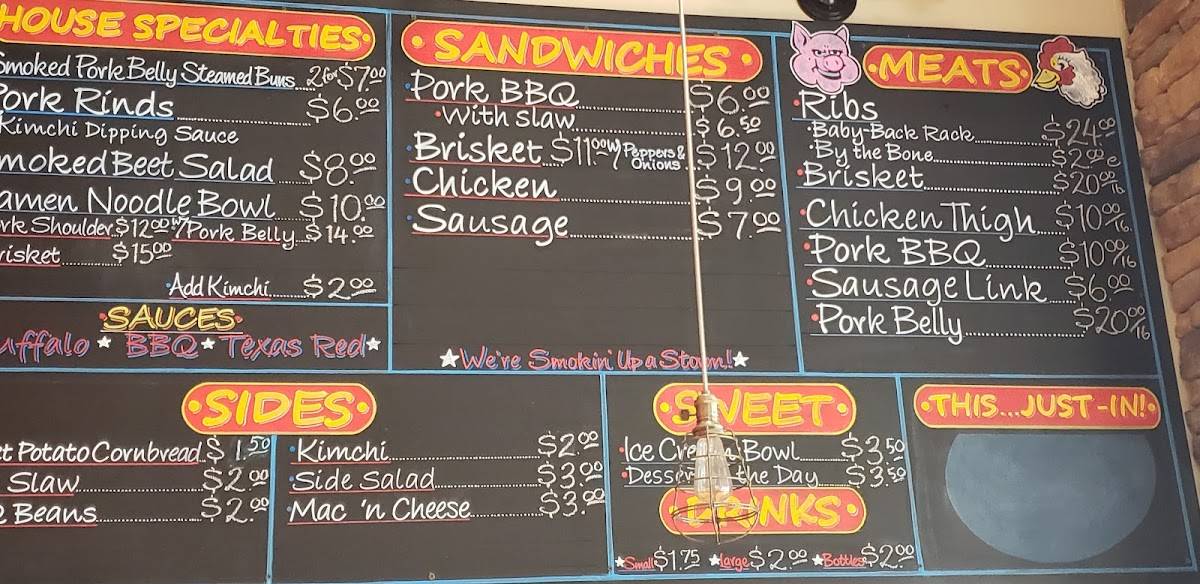 HOUSE SPECIALTIES
Smoked Pork Belly Steamed Buns 2 for $7.00
Pork Rinds $6.00
Kimchi Dipping Sauce
Smoked Beet Salad $8.00
Ramen Noodle Bowl $10.00
Pork Shoulder $12.00 w/ Pork Belly $14.00
Brisket $15.00
Add Kimchi $2.00
SAUCES
Buffalo * BBQ * Texas Red *
SANDWICHES
Pork BBQ $6.00
With slaw $6.50
Brisket $11.00 w/ Peppers & Onions $12.00
Chicken $9.00
Sausage $7.00
We're Smokin' Up a Storm!
MEATS
Ribs
Baby-Back Rack $24.00
By the Bone $2.00 e
Brisket $20.00/lb
Chicken Thigh $10.00/lb.
Pork BBQ $10.00/lb
Sausage Link $6.00
Pork Belly $20.00/lb
SIDES
Potato Cornbread $1.50
Slaw $2.00
Beans $2.00
Kimchi $2.00
Side Salad $3.00
Mac 'n Cheese $3.00
SWEET
Ice Cream Bowl $3.50
Dessert the Day $3.50
DRINKS
Small $1.75 Large $2.00 Bottles $2.00
THIS...JUST-IN!